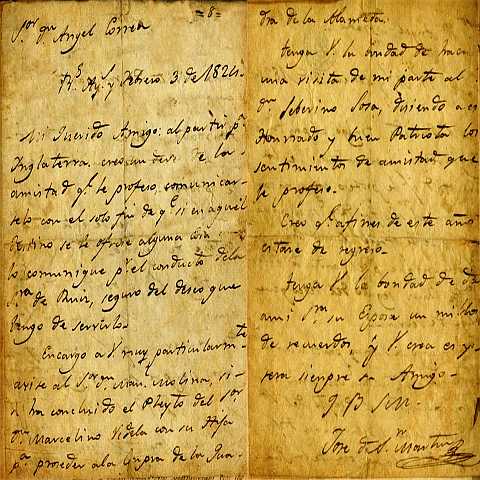 =8=
Sor. dn. Angel Correa
Bs. Ays. y Febrero 3 de 1824.
Mi Querido Amigo: al partir pa.
Ynglaterra creo un dever de la
amistad qe. le profeso, comunicar-
selo con el solo fin de qe. si en aquel
destino se le ofrece alguna cosa
lo comunique pr. el conducto de la
Sra. de Ruiz, seguro del deseo que
tengo de servirlo.
Encargo a V. muy particularmte.
avise al Sor. dn. Man. Molina, si
ha concluido el Pleyto del Sor.
dn. Marcelino Videla con su Hija
pa. proceder a la compra de la Qua-
dra de la Alameda.
tenga V. la bondad de hacer
una visita de mi parte al
dn. Seberino Sosa, disiendo a es
Honrrado y buen Patriota los
sentimientos de amistad que
le profeso.
Creo qe. a fines de este año
estare de regreso.
tenga V. la bondad de dar
a mi Sra. su Esposa un millon
de recuerdos, y V. crea es y
sera siempre su Amigo.
Q B S M
Jose de Sn. Martin